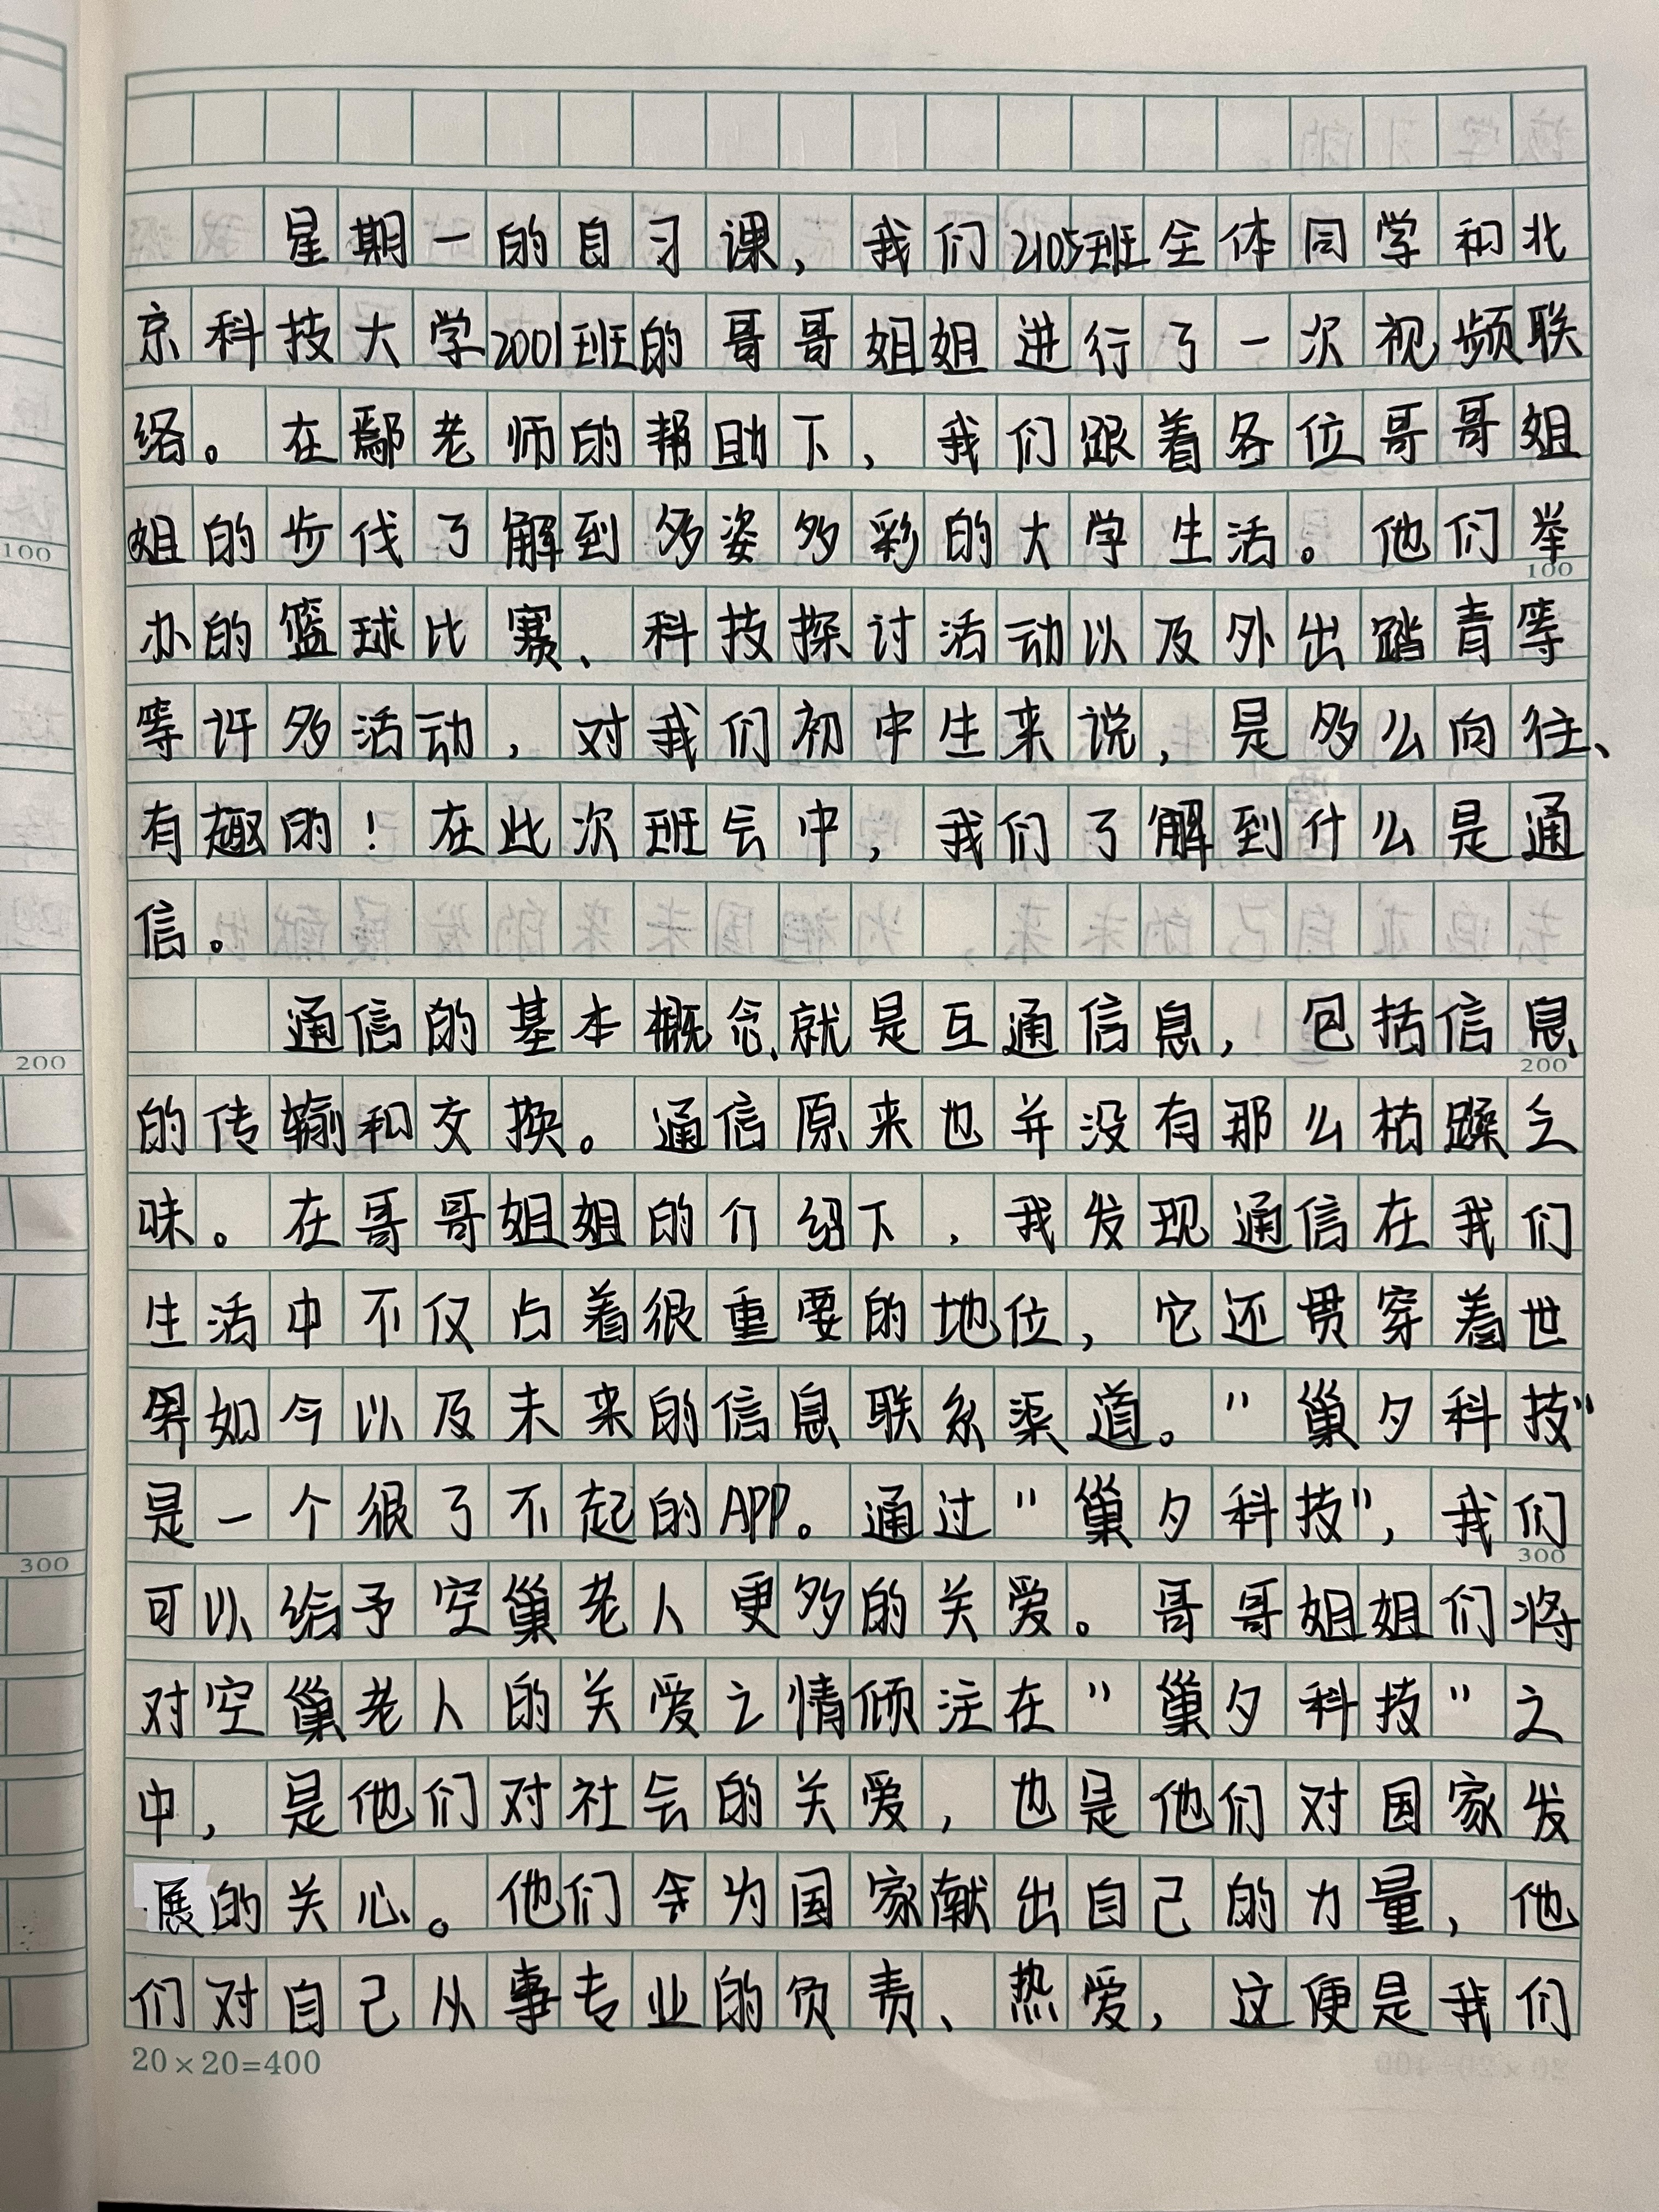 星期一的自习课，我们2105班全体同学和北
京科技大学2001班的哥哥姐姐进行了一次视频联
络。在鄢老师的帮助下，我们跟着各位哥哥姐
姐的步伐了解到多姿多彩的大学生活。他们举
100
办的篮球比赛、科技探讨活动以及外出踏青等
等许多活动，对我们初中生来说，是多么向往、
有趣的！在此次班会中，我们了解到什么是通
信。
通信的基本概念就是互通信息，包括信息
200
的传输和交换。通信原来也并没有那么枯躁乏
味。在哥哥姐姐的介绍下，我发现通信在我们
生活中不仅占着很重要的地位，它还贯穿着世
界如今以及未来的信息联系渠道。"巢夕科技"
是一个很了不起的APP。通过"巢夕科技"，我们
300
可以给予空巢老人更多的关爱。哥哥姐姐们将
对空巢老人的关爱之情倾注在"巢夕科技"之
中，是他们对社会的关爱，也是他们对国家发
展的关心。他们会为国家献出自己的力量，他
们对自己从事专业的负责、热爱，这便是我们
20×20=400
100
200
300